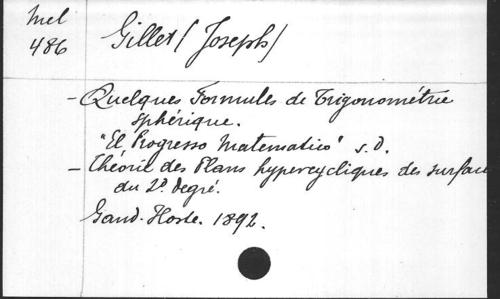 Mel
486
Gillet (Joseph)
- Quelques Formules de Trigonométrie
sphérique.
"El Progresso Matematico" s. D.
- Théorie des Plans hypercycliques des surfaces
du 2d degré.
Gand. Hoste. 1892.